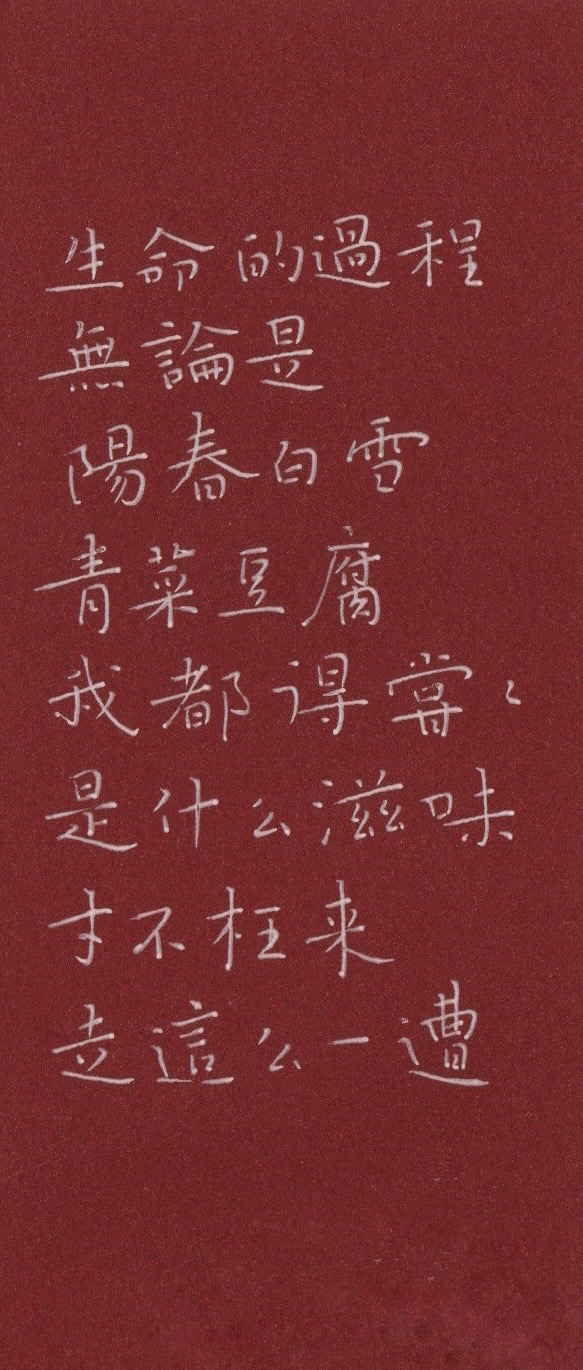 生命的過程
無論是
陽春白雪
青菜豆腐
我都得嘗〻
是什么滋味
才不枉来
走這么一遭